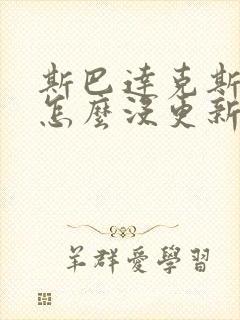 斯巴達克斯
怎麼沒更新
羊群愛學習